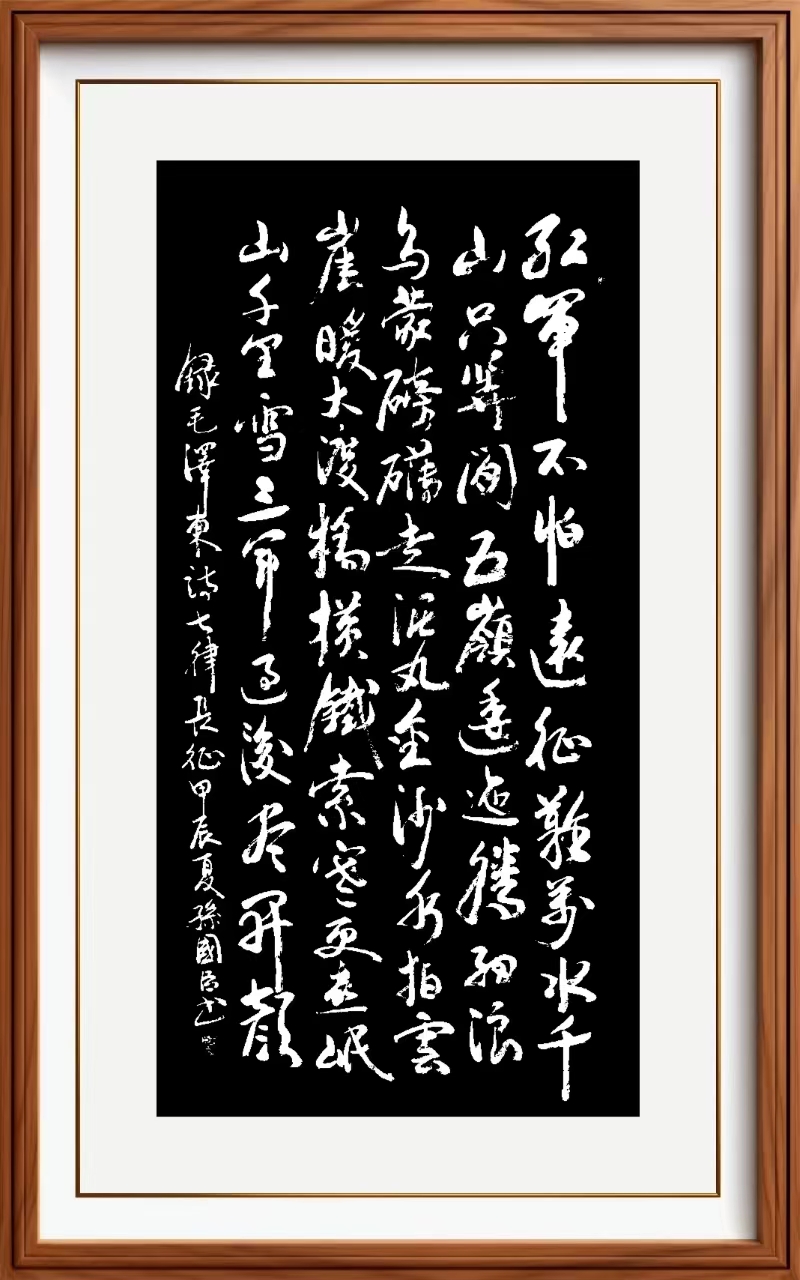 紅軍不怕遠征難萬水千
山只等閒五嶺逶迤騰細浪
烏蒙磅礴走泥丸金沙水拍雲
崖暖大渡橋橫鐵索寒更喜岷
山千里雪三軍過後尽開顏
録毛澤東詩七律長征甲辰夏孫國書